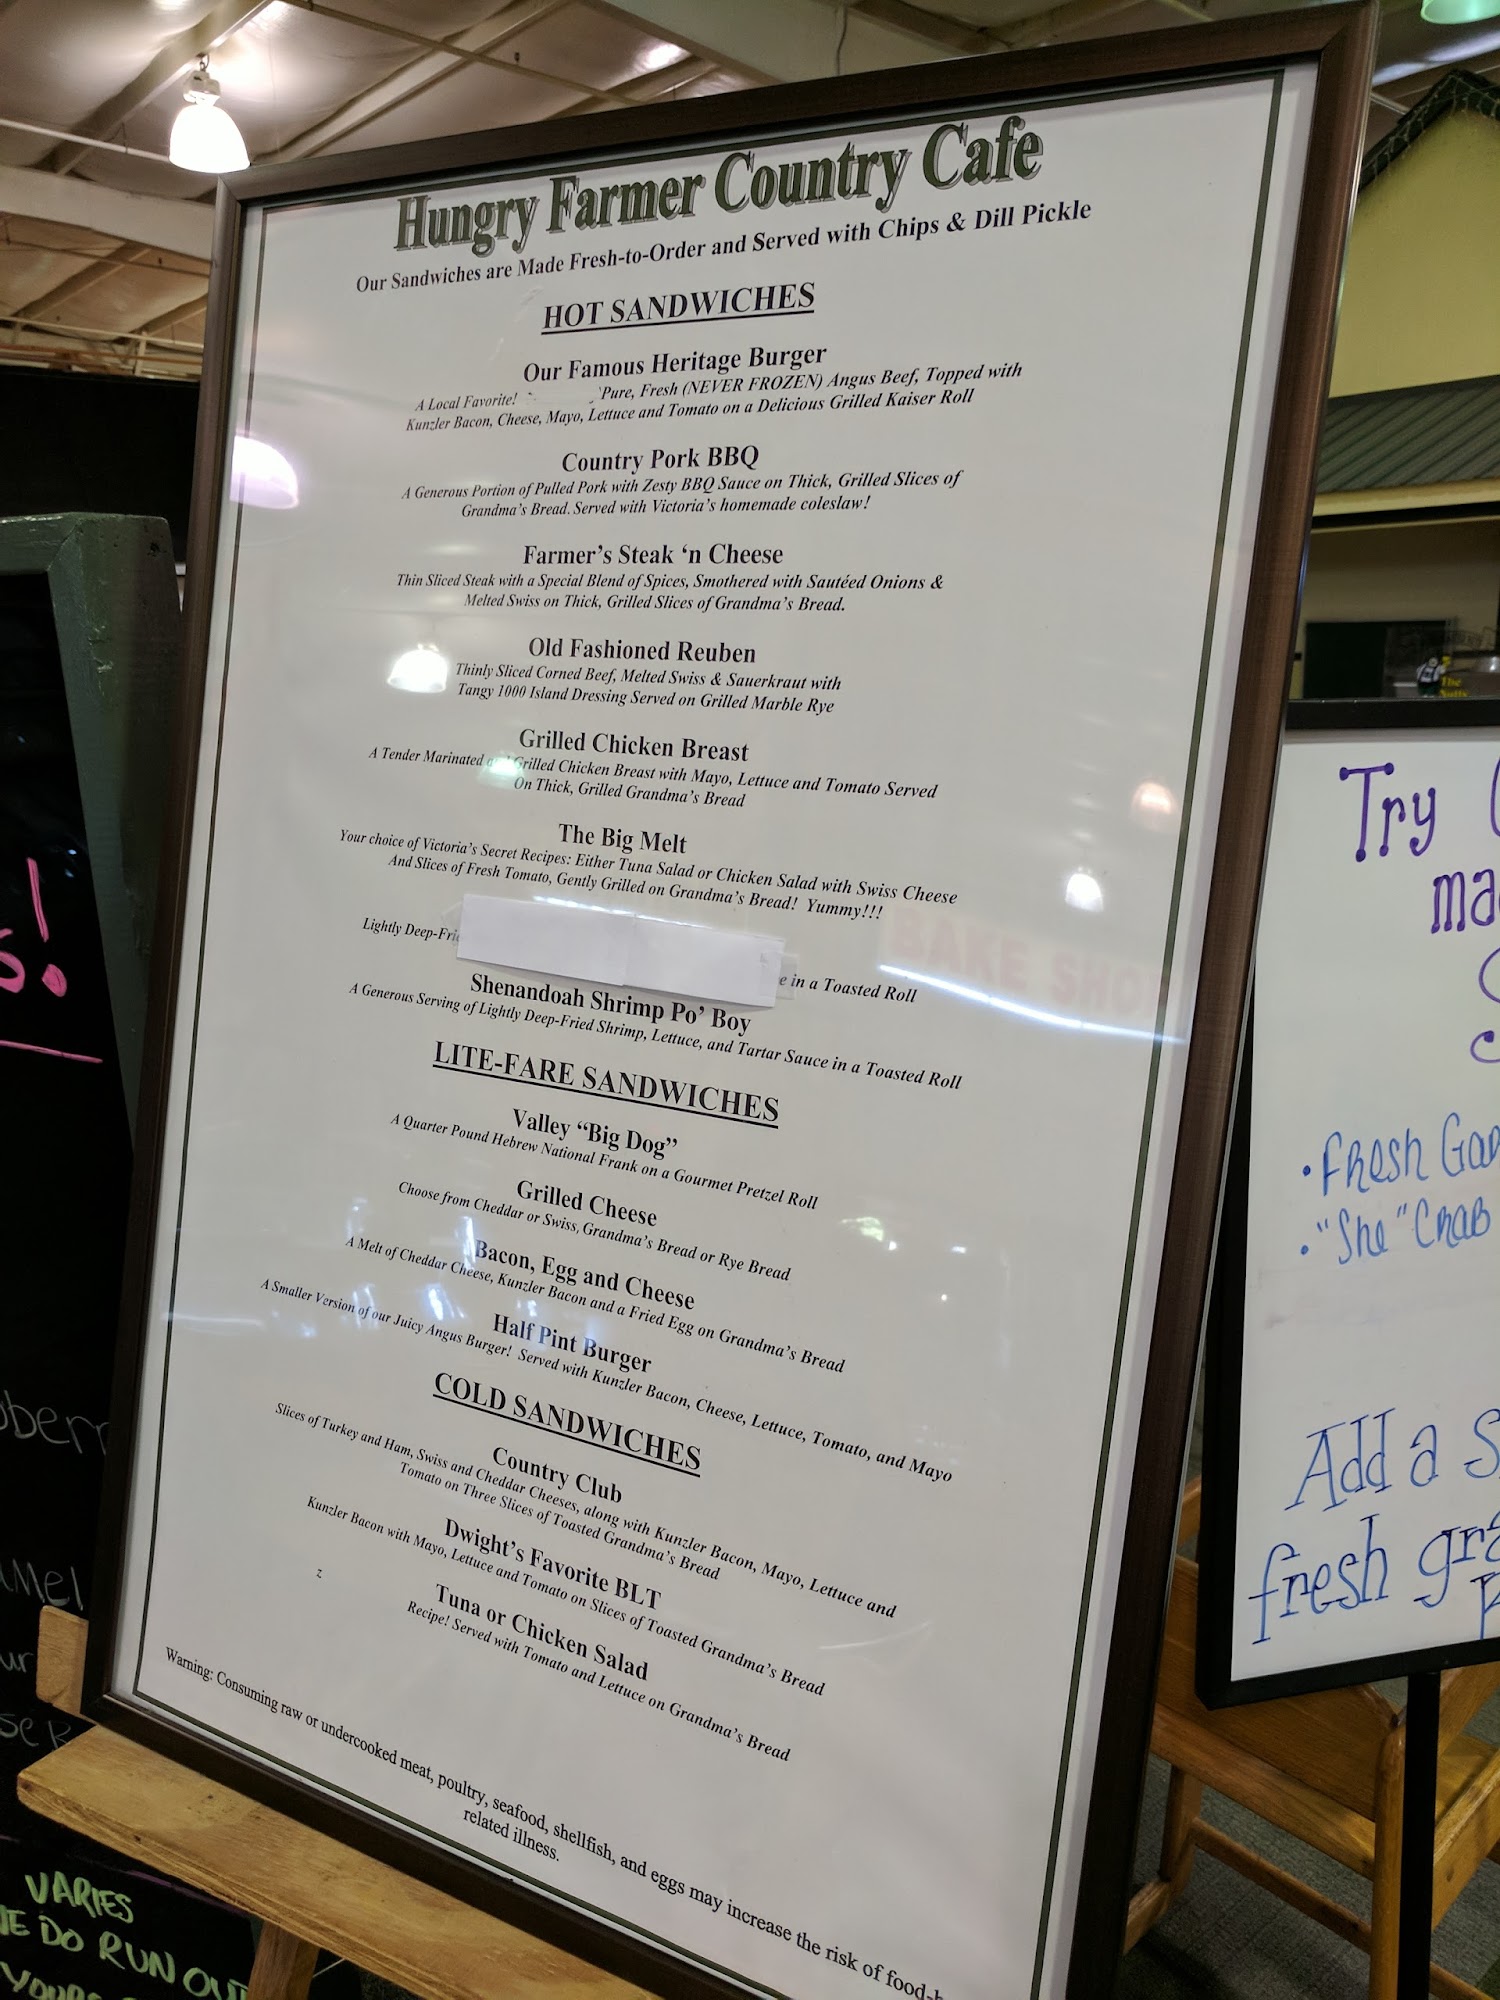 Hungry Farmer Country Cafe
Our Sandwiches are Made Fresh-to-Order and Served with Chips & Dill Pickle
HOT SANDWICHES
Our Famous Heritage Burger
A Local Favorite! Pure, Fresh (NEVER FROZEN) Angus Beef, Topped with
Kunzler Bacon, Cheese, Mayo, Lettuce and Tomato on a Delicious Grilled Kaiser Roll
Country Pork BBQ
A Generous Portion of Pulled Pork with Zesty BBQ Sauce on Thick, Grilled Slices of
Grandma's Bread. Served with Victoria's homemade coleslaw!
Farmer's Steak 'n Cheese
Thin Sliced Steak with a Special Blend of Spices, Smothered with Sautéed Onions &
Melted Swiss on Thick, Grilled Slices of Grandma's Bread.
Old Fashioned Reuben
Thinly Sliced Corned Beef, Melted Swiss & Sauerkraut with
Tangy 1000 Island Dressing Served on Grilled Marble Rye
Grilled Chicken Breast
A Tender Marinated and Grilled Chicken Breast with Mayo, Lettuce and Tomato Served
On Thick, Grilled Grandma's Bread
The Big Melt
Your choice of Victoria's Secret Recipes: Either Tuna Salad or Chicken Salad with Swiss Cheese
And Slices of Fresh Tomato, Gently Grilled on Grandma's Bread! Yummy!!!
Lightly in a Toasted Roll
Shenandoah Shrimp Po' Boy
A Generous Serving of Lightly Deep-Fried Shrimp, Lettuce, and Tartar Sauce in a Toasted Roll
LITE-FARE SANDWICHES
Valley "Big Dog"
A Quarter Pound Hebrew National Frank on a Gourmet Pretzel Roll
Grilled Cheese
Choose from Cheddar or Swiss, Grandma's Bread or Rye Bread
Bacon, Egg and Cheese
A Melt of Cheddar Cheese, Kunzler Bacon and a Fried Egg on Grandma's Bread
Half Pint Burger
A Smaller Version of our Juicy Angus Burger! Served with Kunzler Bacon, Cheese, Lettuce, Tomato, and Mayo
COLD SANDWICHES
Country Club
Slices of Turkey and Ham, Swiss and Cheddar Cheeses, along with Kunzler Bacon, Mayo, Lettuce and
Tomato on Three Slices of Toasted Grandma's Bread
Dwight's Favorite BLT
Kunzler Bacon with Mayo, Lettuce and Tomato on Slices of Toasted Grandma's Bread
z
Tuna or Chicken Salad
Recipe! Served with Tomato and Lettuce on Grandma's Bread
Warning: Consuming raw or undercooked meat, poultry, seafood, shellfish, and eggs may increase the risk of
related illness.
BAKE SHOP
Try
• Fresh
• "She" Crab
Add a
fresh
VARIES
DO RUN OUT